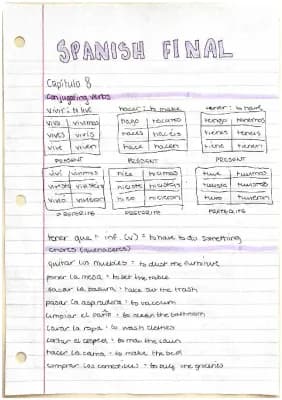 SPANISH FINAL
Capítulo 8
conjugating verbs
vivir: to live hacer: to make tener: to have
vivo vivimos hago hacemos tengo tenemos
vives vivís haces hacéis tienes tenéis
vive viven hace hacen tiene tienen
PRESENT PRESENT PRESENT
viví vivimos hice hicimos tuve tuvimos
viviste vivisteis hiciste hicisteis tuviste tuvisteis
vivió vivieron hizo hicieron tuvo tuvieron
PRETERITE PRETERITE PRETERITE
tener que + inf. (v) = to have to do something
chores (quehaceres)
quitar los muebles: to dust the furniture
poner la mesa: to set the table
sacar la basura: take out the trash
pasar la aspiradora: to vacuum
limpiar el baño: to clean the bathroom
lavar la ropa: to wash clothes
cortar el césped: to mow the lawn
hacer la cama: to make the bed
comprar los comestibles: to buy the groceries